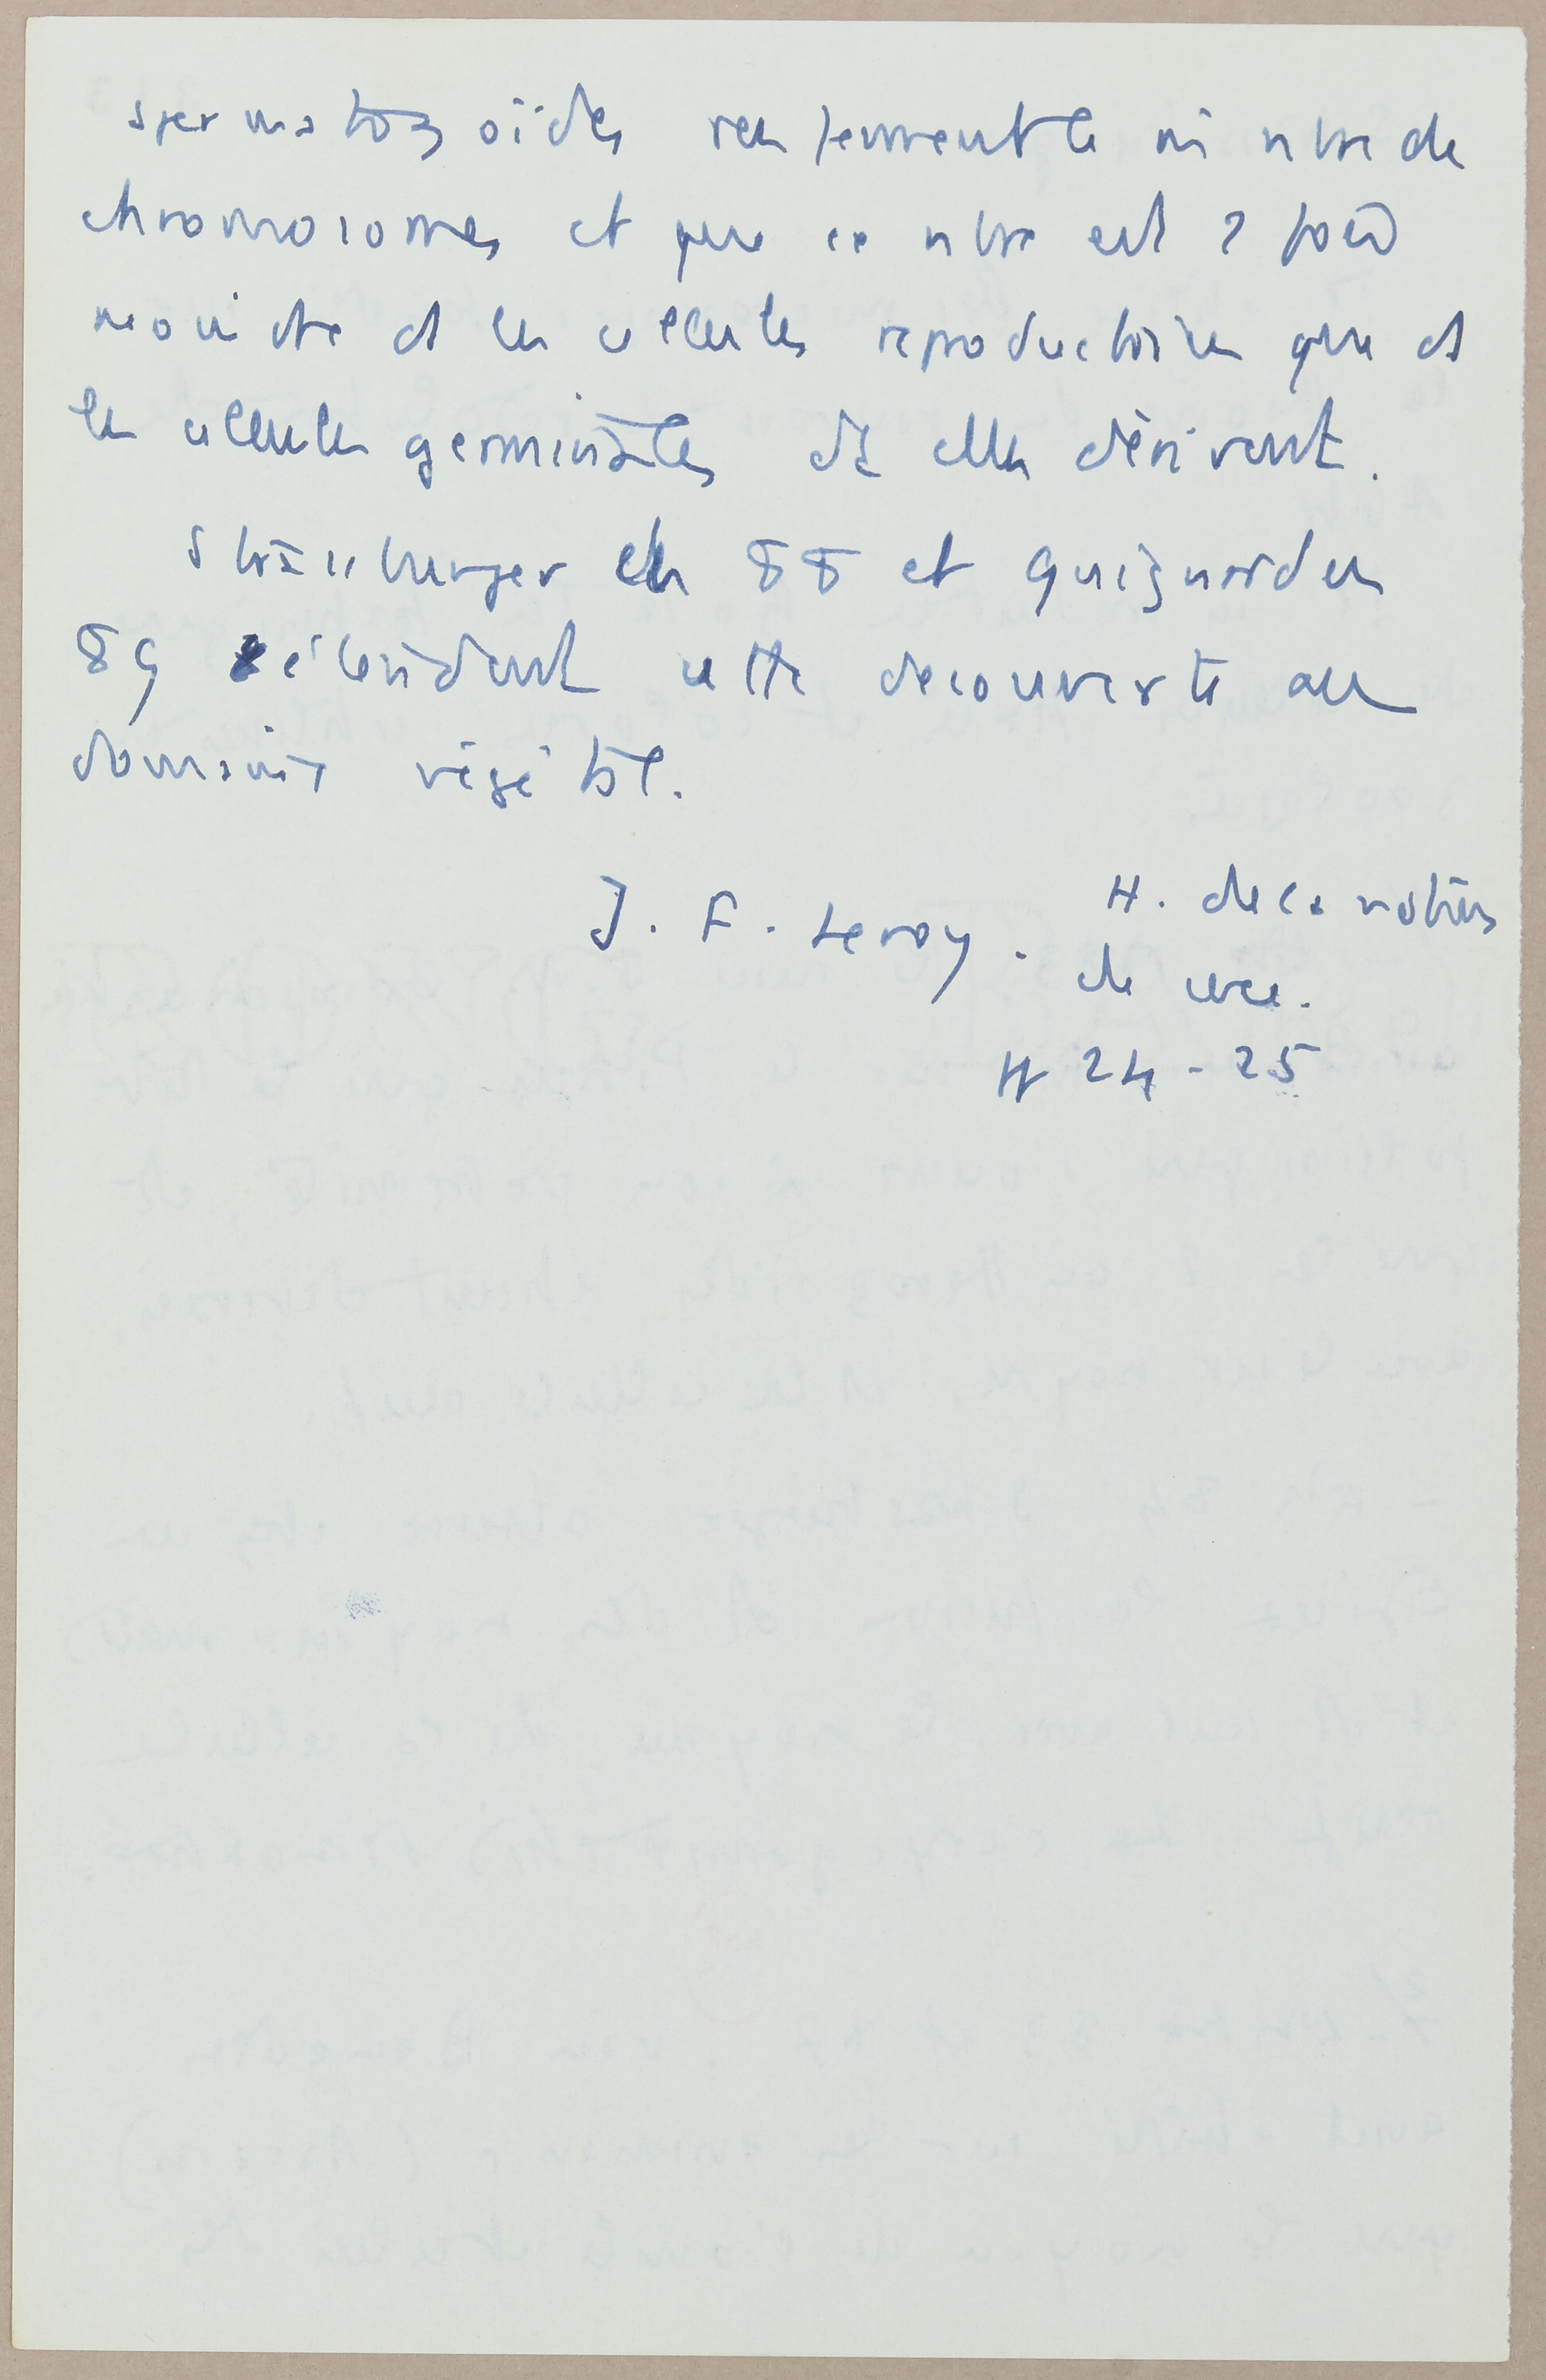 spermatozoïdes renferment le mi nbre de
chromosomes et que ce nbre est 2 fois
moindre ds les cellules reproductrices que ds
les cellules germinales dt elles dérivent.
Strasburger en 88 et Guignard en
89 étendent cette découverte au
domaine végétal.
J. F. Leroy. H. de la notion
de sexe.
tr 24-25